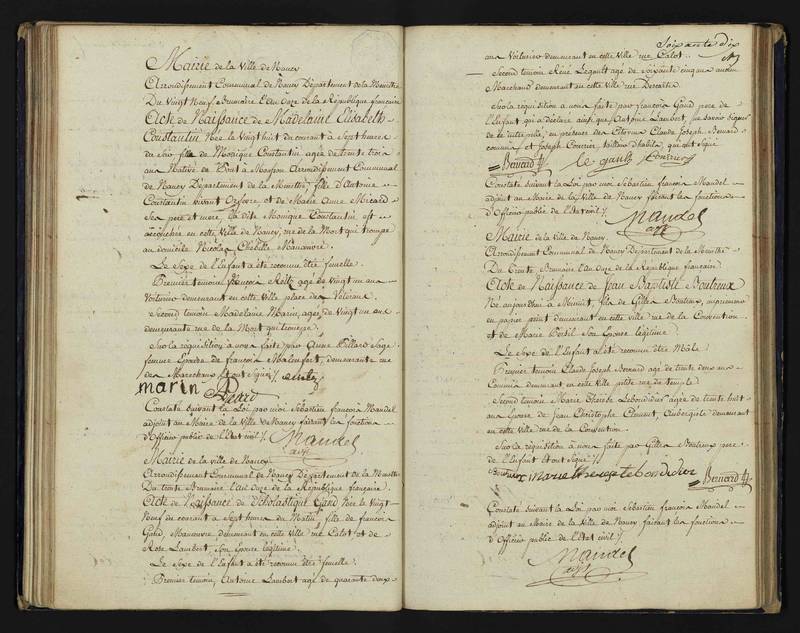 Mairie de la Ville de Nancy
Arrondissement Communal de Nancy Département de la Meurthe
Du Vingt Neuf Brumaire L'an Douze de la République francaise
Acte de Naissance de Madelaine Elisabeth
Constantin Née le Vingt huit du courant à Sept heures
du Soir fille de Monique Constantin agée de trente trois
ans Native de Pont à Mousson Arrondissement Communal
de Nancy Département de la Meurthe, fille d'Antoine
Constantin vivant Orfevre, et de Marie Anne Micard
Ses pere et mere, la dite Monique Constantin est
accouchée en cette Ville de Nancy, rue de la Mort qui trompe
au domicile Nicolas Manœuvre.
Le Sexe de l'Enfant a été reconnu être femelle.
Premier temoin François agé de vingt un ans
Voiturier demeurant en cette Ville place des Vétérans
Second temoin Madelaine Marin, agée de Vingt un ans
demeurante rue de la Mort qui trompe.
Sur la réquisition à nous faite par Anne Sage
femme Epouse de francois demeurante rue
des Marechaux et ont Signés
marin
Constaté suivant la Loi par moi Sébastien francois Mandel
adjoint au Maire de la Ville de Nancy faisant les fonctions
d'Officier public de l'Etat civil
Mandel
adjt
Mairie de la ville de Nancy
Arrondissement Communal de Nancy Département de la Meurthe
Du trente Brumaire L'an Douze de la République francaise.
Acte de Naissance de Scholastique Gand Née le Vingt
Neuf du courant à Sept heures du Matin, fille de francois
Gand, Manœuvre, demeurant en cette Ville rue Calot et de
Rose Lambert Son Epouse légitime.
Le Sexe de l'Enfant a été reconnu être femelle.
Premier temoin, Antoine Lambert agé de quarante deux
Soixante dix
ans Voiturier demeurant en cette Ville rue Calot.
Second temoin René Legault agé de soixante cinq ans ancien
Marchand demeurant en cette Ville rue Descartes.
Sur la réquisition à nous faite par francois Gand pere de
l'Enfant qui a déclaré ainsi que Antoine Lambert, ne savoir Signer
de ce interpellé, en présence des Citoyens Claude Joseph Bernard
commis et Joseph Courrier tailleur d'habits, qui ont Signé
Bernard le gault Courrier
Constaté suivant la Loi par moi Sébastien francois Mandel
adjoint au Maire de la Ville de Nancy faisant les fonctions
d'Officier public de l'Etat civil
Mandel
adjt
Mairie de la Ville de Nancy
Arrondissement Communal de Nancy Département de la Meurthe
Du trente Brumaire L'an Douze de la République francaise
Acte de Naissance de Jean Baptiste Bouteux
Né aujourdhui à Minuit, fils de Gilles Bouteux, imprimeur
en papier peint demeurant en cette ville rue de la Convention
et de Marie Son Epouse légitime.
Le Sexe de l'Enfant a été reconnu être Mâle.
Premier temoin Claude Joseph Bernard agé de trente deux ans
Commis demeurant en cette Ville petite rue du temple
Second temoin Marie Therese Lebondidier agée de trente huit
ans Epouse de Jean Christophe Clement Aubergiste demeurant
en cette Ville rue de la Convention.
Sur la réquisition à nous faite par Gilles Bouteux pere
de l'Enfant et ont Signé
Bouteux marie therese lebondidier Bernard
Constaté suivant la Loi par moi Sébastien francois Mandel
adjoint au Maire de la Ville de Nancy faisant les fonctions
d'Officier public de l'Etat civil
Mandel
adjt